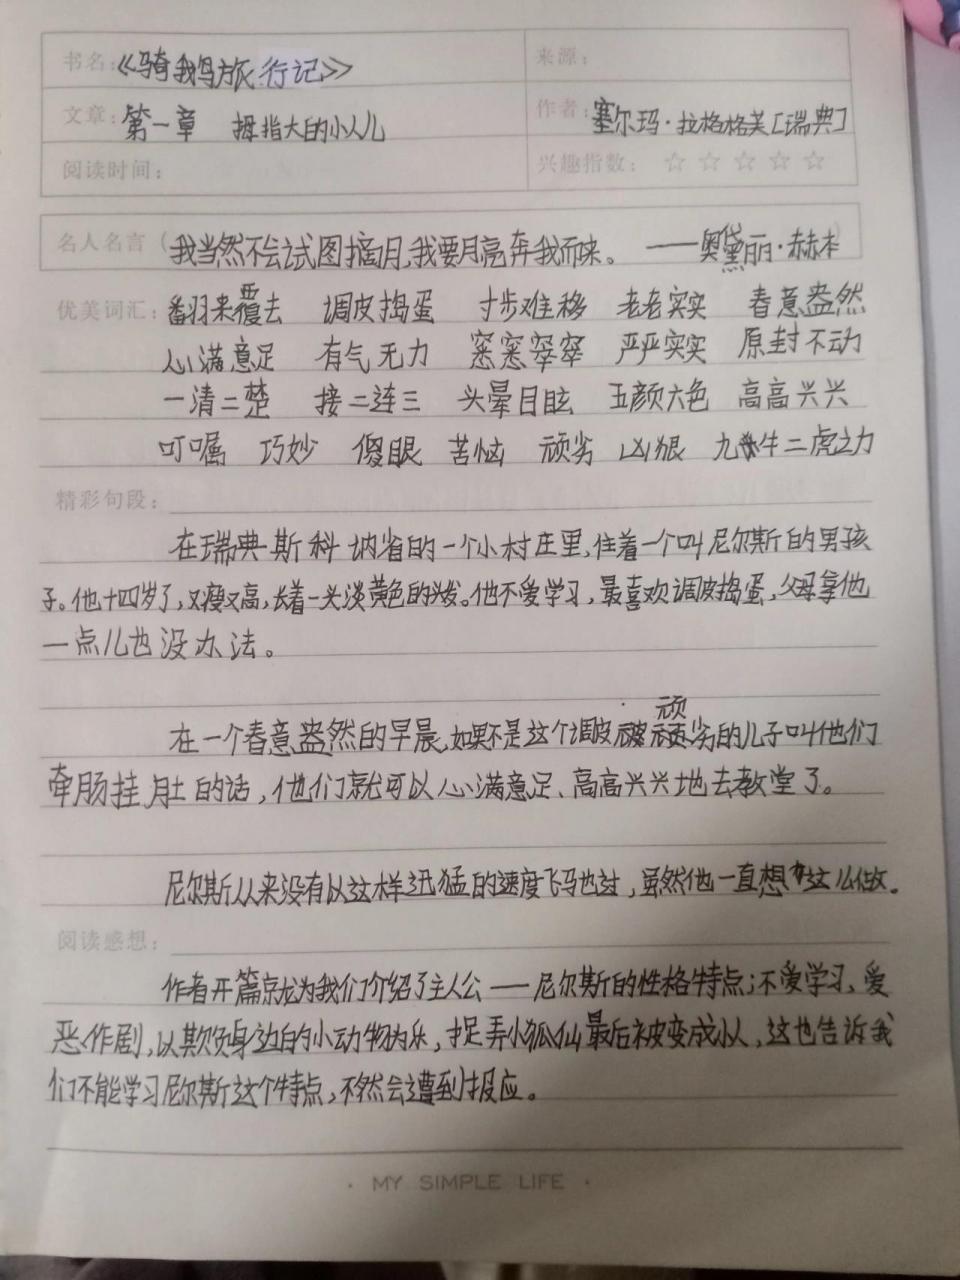 书名：《骑鹅旅行记》 来源：
文章：第一章 拇指大的小人儿 作者：塞尔玛·拉格格芙[瑞典]
阅读时间： 兴趣指数：☆ ☆ ☆ ☆ ☆
名人名言（我当然不会试图摘月,我要月亮奔我而来。 ——奥黛丽·赫本
优美词汇：翻来覆去 调皮捣蛋 寸步难移 老老实实 春意盎然
心满意足 有气无力 窸窸窣窣 严严实实 原封不动
一清二楚 接二连三 头晕目眩 五颜六色 高高兴兴
叮嘱 巧妙 傻眼 苦恼 顽劣 凶狠 九牛二虎之力
精彩句段：
在瑞典斯科讷省的一个小村庄里,住着一个叫尼尔斯的男孩
子。他十四岁了,又瘦又高,长着一头淡黄色的头发。他不爱学习,最喜欢调皮捣蛋,父母拿他
一点儿也没办法。
在一个春意盎然的早晨,如果不是这个调皮顽劣的儿子叫他们
牵肠挂肚的话,他们就可以心满意足、高高兴兴地去教堂了。
尼尔斯从来没有以这样迅猛的速度飞马也过,虽然他一直想这么做。
阅读感想：
作者开篇就为我们介绍了主人公——尼尔斯的性格特点;不爱学习、爱
恶作剧,以欺负身边的小动物为乐,捉弄小狐仙最后被变成小人,这也告诉我
们不能学习尼尔斯这个特点,不然会遭到报应。
· MY SIMPLE LIFE ·